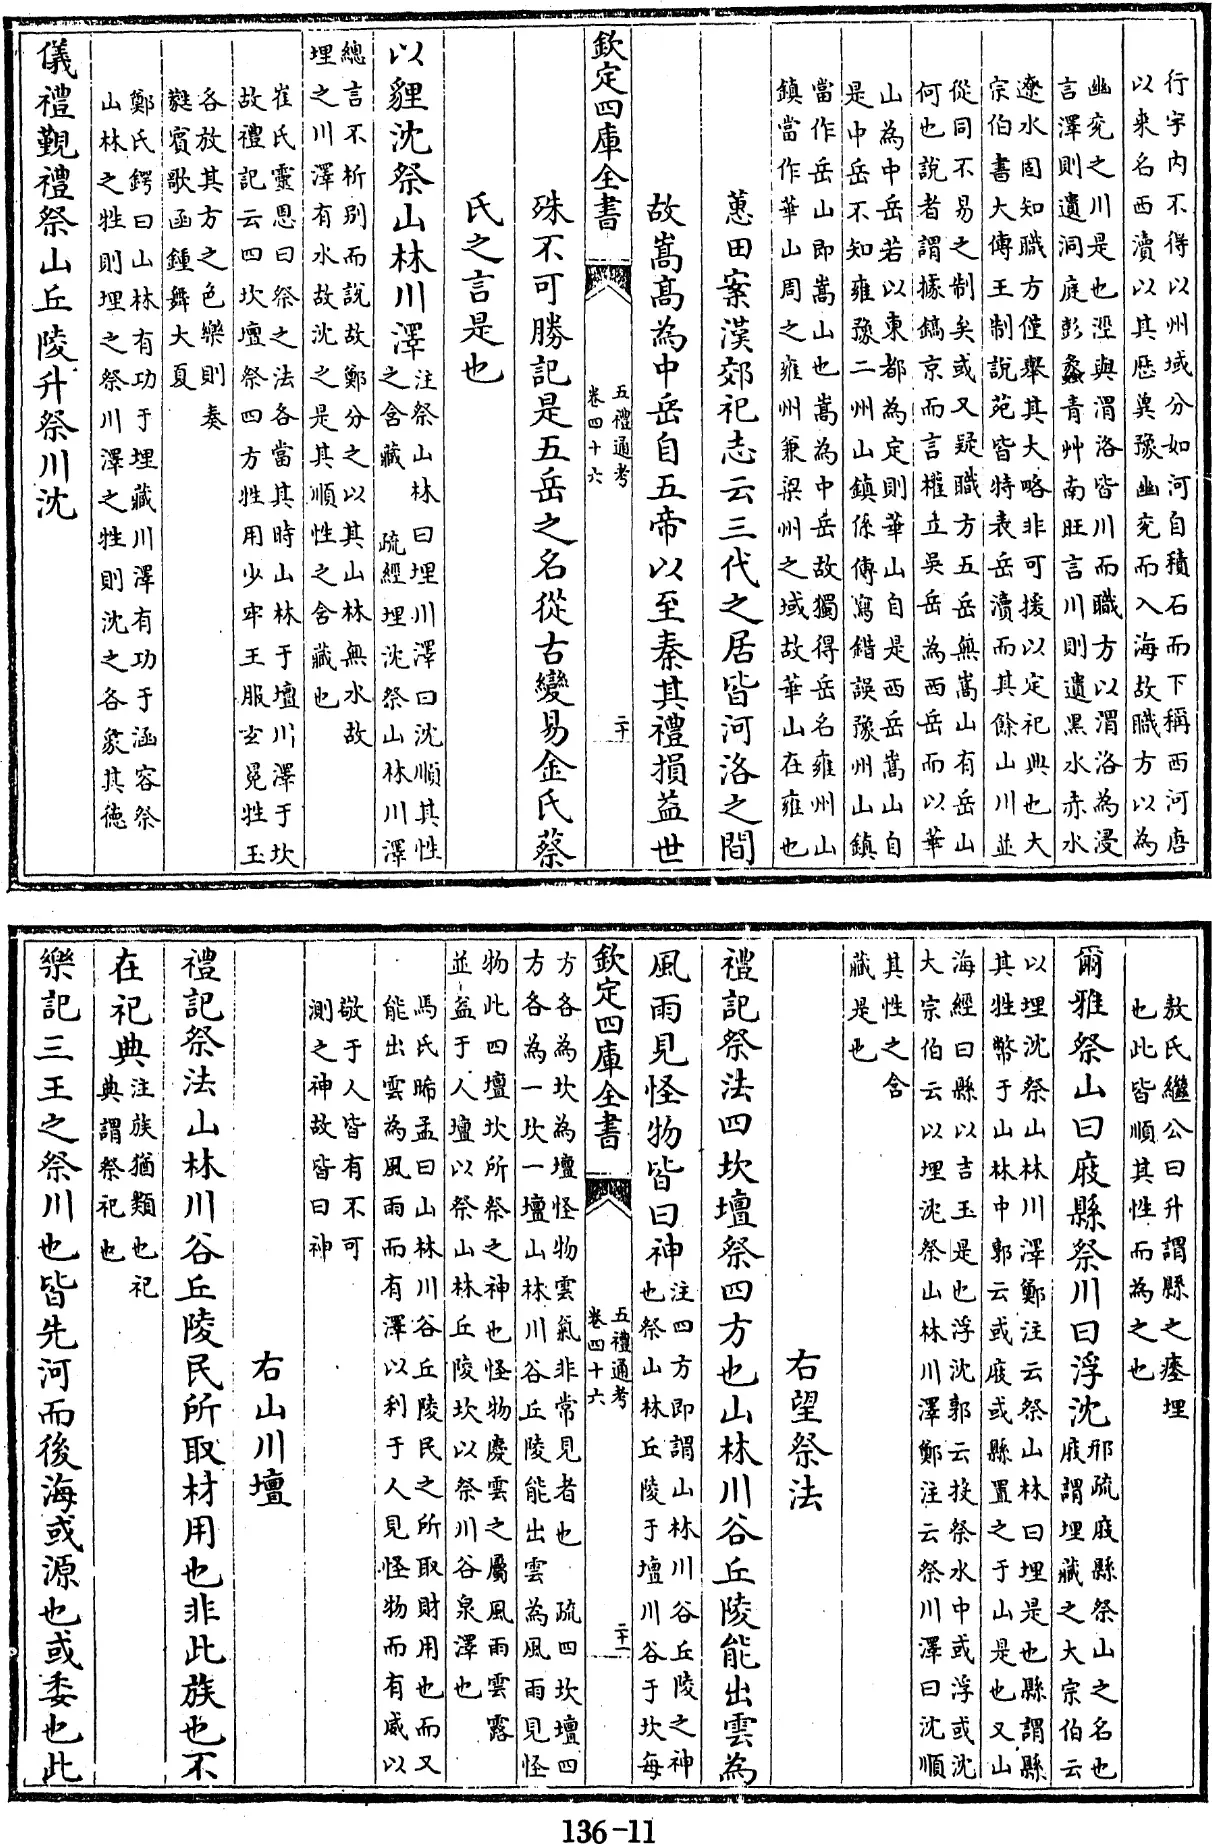 行宇内不得以州域分如河自積石而下稱西河唐
以来名西瀆以其歷冀豫幽兖而入海故職方以為
幽兖之川是也涇與渭洛皆川而職方以渭洛為浸
言澤則遺洞庭彭蠡青艸南旺言川則遺黑水赤水
遼水固知職方僅舉其大略非可援以定祀典也大
宗伯書大傳王制說苑皆特表岳瀆而其餘山川並
從同不易之制矣或又疑職方五岳無嵩山有岳山
何也說者謂據鎬京而言權立吳岳為西岳而以華
山為中岳若以東都為定則華山自是西岳嵩山自
是中岳不知雍豫二州山鎮係傳寫錯誤豫州山鎮
當作岳山即嵩山也嵩為中岳故獨得岳名雍州山
鎮當作華山周之雍州兼梁州之域故華山在雍也
蕙田案漢郊祀志云三代之居皆河洛之間
故嵩髙為中岳自五帝以至秦其禮損益世
欽定四庫全書
五禮通考
卷四十六
二十
殊不可勝記是五岳之名從古變易金氏蔡
氏之言是也
以貍沈祭山林川澤
注祭山林曰埋川澤曰沈順其性
之含藏 疏經埋沈祭山林川澤
總言不析别而說故鄭分之以其山林無水故
埋之川澤有水故沈之是其順性之含藏也
崔氏靈恩曰祭之法各當其時山林于壇川澤于坎
故禮記云四坎壇祭四方牲用少牢王服玄冕牲玉
各放其方之色樂則奏
蕤賓歌函鍾舞大夏
鄭氏鍔曰山林有功于埋藏川澤有功于涵容祭
山林之牲則埋之祭川澤之牲則沈之各象其德
儀禮覲禮祭山丘陵升祭川沈
敖氏繼公曰升謂縣之瘞埋
也此皆順其性而為之也
爾雅祭山曰庪縣祭川曰浮沈
邢疏庪縣祭山之名也
庪謂埋藏之大宗伯云
以埋沈祭山林川澤鄭注云祭山林曰埋是也縣謂縣
其牲幣于山林中郭云或庪或縣置之于山是也又山
海經曰縣以吉玉是也浮沈郭云投祭水中或浮或沈
大宗伯云以埋沈祭山林川澤鄭注云祭川澤曰沈順
其性之含
藏是也
右望祭法
禮記祭法四坎壇祭四方也山林川谷丘陵能出雲為
風雨見怪物皆曰神
注四方即謂山林川谷丘陵之神
也祭山林丘陵于壇川谷于坎每
欽定四庫全書
五禮通考
卷四十六
二十一
方各為坎為壇怪物雲氣非常見者也 疏四坎壇四
方各為一坎一壇山林川谷丘陵能出雲為風雨見怪
物此四壇坎所祭之神也怪物慶雲之屬風雨雲露
並益于人壇以祭山林丘陵坎以祭川谷泉澤也
馬氏晞孟曰山林川谷丘陵民之所取財用也而又
能出雲為風雨而有澤以利于人見怪物而有威以
敬于人皆有不可
測之神故皆曰神
右山川壇
禮記祭法山林川谷丘陵民所取材用也非此族也不
在祀典
注族猶類也祀
典謂祭祀也
樂記三王之祭川也皆先河而後海或源也或委也此
136-11